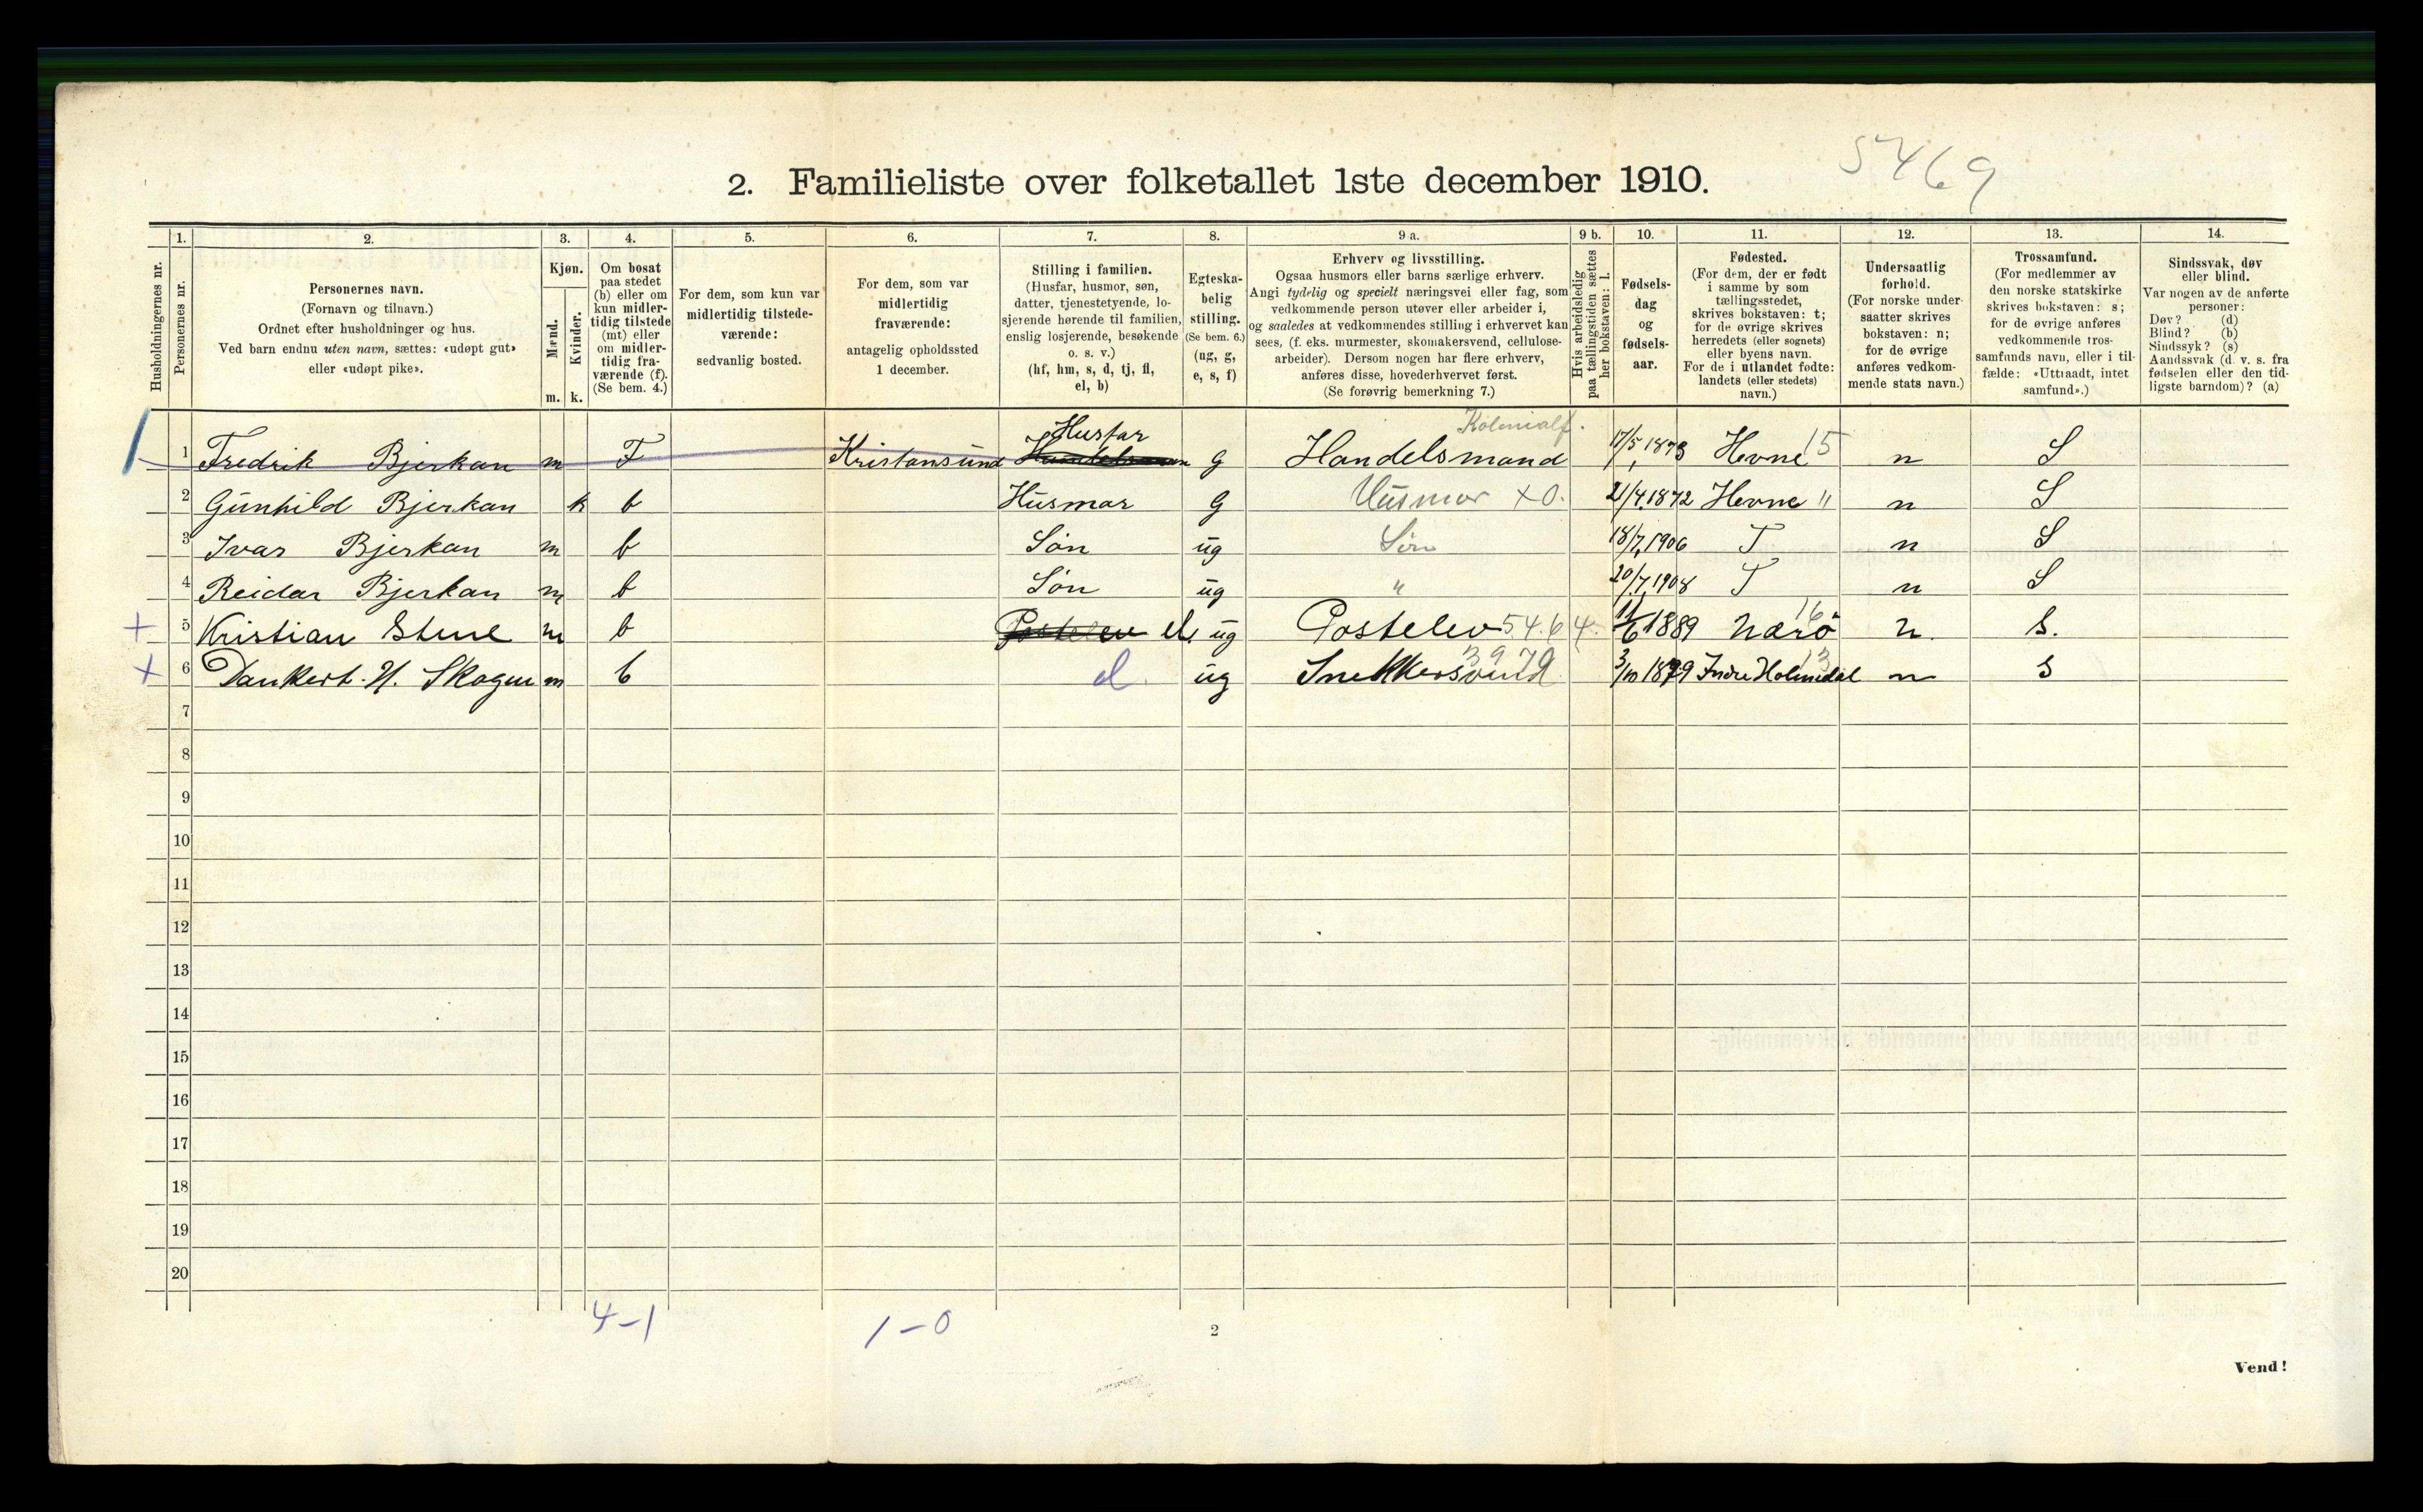 5469
2. Familieliste over folketallet 1ste december 1910.
Husholdningernes nr.
1. Personernes nr.
2. Personernes navn.
(Fornavn og tilnavn.)
Ordnet efter husholdninger og hus.
Ved barn endnu uten navn, sættes: «udøpt gut»
eller «udøpt pike».
3. Kjøn.
Mænd. m.
Kvinder. k.
4. Om bosat
paa stedet
(b) eller om
kun midler-
tidig tilstede
(mt) eller
om midler-
tidig fra-
værende (f).
(Se bem. 4.)
5. For dem, som kun var
midlertidig tilstede-
værende:
sedvanlig bosted.
6. For dem, som var
midlertidig
fraværende:
antagelig opholdssted
1 december.
7. Stilling i familien.
(Husfar, husmor, søn,
datter, tjenestetyende, lo-
sjerende hørende til familien,
enslig losjerende, besøkende
o. s. v.)
(hf, hm, s, d, tj, fl,
el, b)
8. Egteska-
belig
stilling.
(Se bem. 6.)
(ug, g,
e, s, f)
9 a. Erhverv og livsstilling.
Ogsaa husmors eller barns særlige erhverv.
Angi tydelig og specielt næringsvei eller fag, som
vedkommende person utøver eller arbeider i,
og saaledes at vedkommendes stilling i erhvervet kan
sees, (f. eks. murmester, skomakersvend, cellulose-
arbeider). Dersom nogen har flere erhverv,
anføres disse, hovederhvervet først.
(Se forøvrig bemerkning 7.)
9 b. Hvis arbeidsledig
paa tællingstiden sættes
her bokstaven: l.
10. Fødsels-
dag
og
fødsels-
aar.
11. Fødested.
(For dem, der er født
i samme by som
tællingsstedet,
skrives bokstaven: t;
for de øvrige skrives
herredets (eller sognets)
eller byens navn.
For de i utlandet fødte:
landets (eller stedets)
navn.)
12. Undersaatlig
forhold.
(For norske under-
saatter skrives
bokstaven: n;
for de øvrige
anføres vedkom-
mende stats navn.)
13. Trossamfund.
(For medlemmer av
den norske statskirke
skrives bokstaven: s;
for de øvrige anføres
vedkommende tros-
samfunds navn, eller i til-
fælde: «Uttraadt, intet
samfund».)
14. Sindssvak, døv
eller blind.
Var nogen av de anførte
personer:
Døv? (d)
Blind? (b)
Sindssyk? (s)
Aandssvak (d. v. s. fra
fødselen eller den tid-
ligste barndom)? (a)
Husfar Kolonialf.
1 Fredrik Bjerkan m F Kristansund Handelsman G Handelsmand 17/5 1873 Hevne 15 n S
2 Gunhild Bjerkan k b Husmor G Husmor x0. 21/4 1872 Hevne " n S
3 Ivar Bjerkan m b Sön ug Sön 18/7 1906 T n S
4 Reidar Bjerkan m b Sön ug " 20/7 1908 T n S
+ 5 Kristian Stene m b Postelev el. ug Postelev 54.64. 11/6 1889 Nærö 16 n. S.
+ 6 Dankert H. Skogen m b el. ug Snekkersvend 3979 3/10 1879 Indre Holmedal 13 n S
7
8
9
10
11
12
13
14
15
16
17
18
19
20
4–1 1–0
2
Vend!